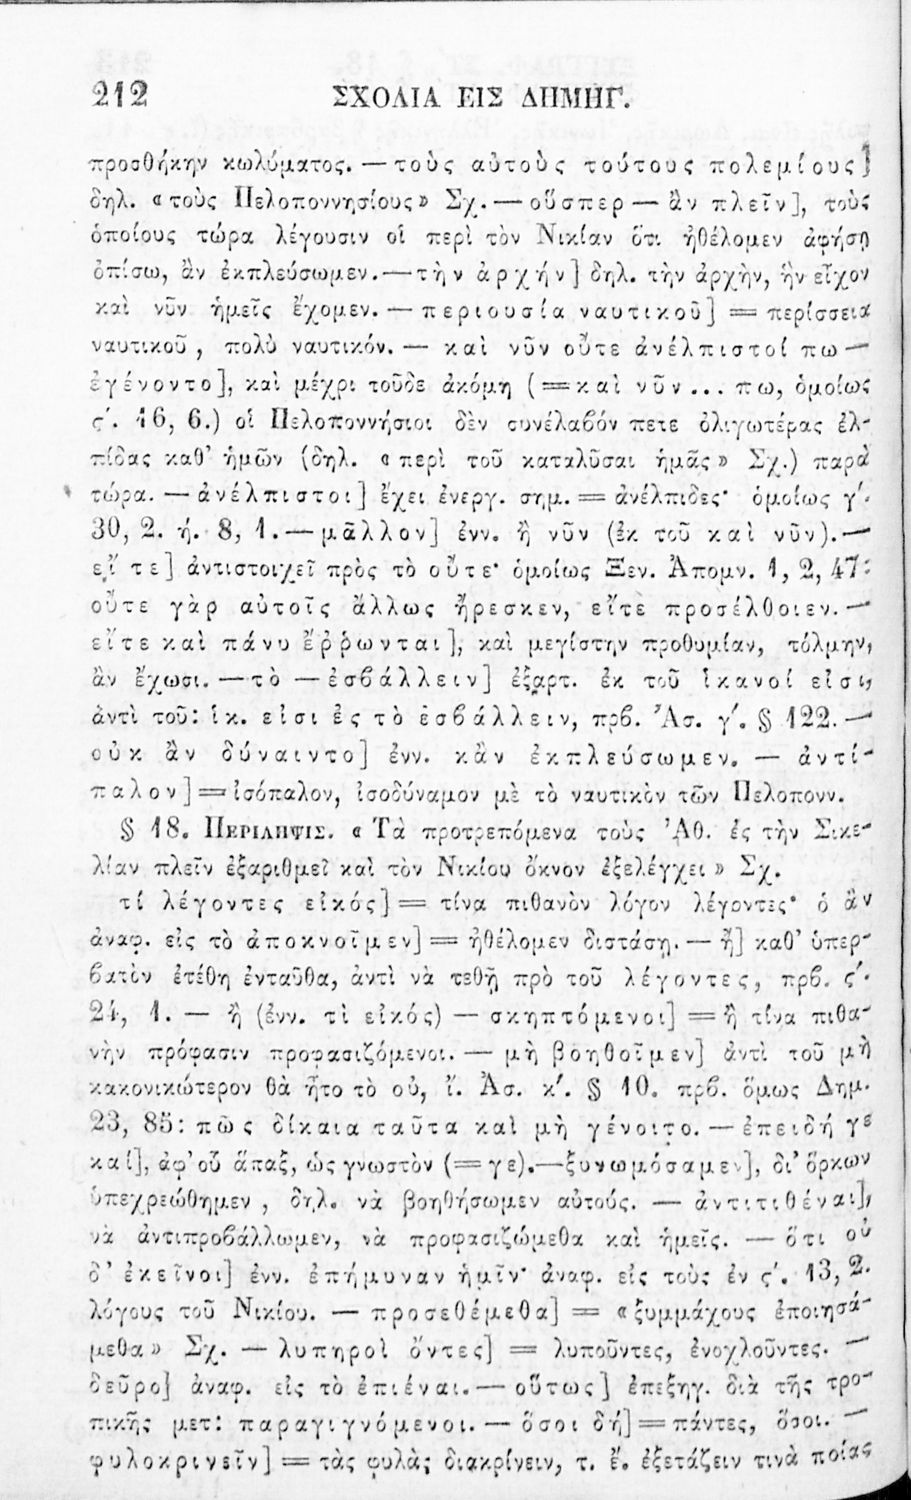 212 ΣΧΟΛΙΑ ΕΙΣ ΔΗΜΗΓ.
προσθήκην κωλύματος. — τοὺς αὐτοὺς τούτους πολεμίους]
δηλ. «τοὺς Πελοποννησίους» Σχ. — οὕσπερ — ἂν πλεῖν], τοὺς
ὁποίους τώρα λέγουσιν οἱ περὶ τὸν Νικίαν ὅτι ἠθέλομεν ἀφήσῃ
ὀπίσω, ἂν ἐκπλεύσωμεν. — τὴν ἀρχήν] δηλ. τὴν ἀρχὴν, ἣν εἶχον
καὶ νῦν ἡμεῖς ἔχομεν. — περιουσία ναυτικοῦ] = περίσσεια
ναυτικοῦ, πολὺ ναυτικόν. — καὶ νῦν οὔτε ἀνέλπιστοί πω —
ἐγένοντο], καὶ μέχρι τοῦδε ἀκόμη (= καὶ νῦν... πω, ὁμοίως
ϛ΄. 16, 6.) οἱ Πελοποννήσιοι δὲν συνέλαβόν ποτε ὀλιγωτέρας ἐλ-
πίδας καθ' ἡμῶν (δηλ. «περὶ τοῦ καταλῦσαι ἡμᾶς» Σχ.) παρὰ
τώρα. — ἀνέλπιστοι] ἔχει ἐνεργ. σημ. = ἀνέλπιδες· ὁμοίως γ΄.
30, 2. ή. 8, 1. — μᾶλλον] ἐνν. ἢ νῦν (ἐκ τοῦ καὶ νῦν). —
εἴ τε] ἀντιστοιχεῖ πρὸς τὸ οὔτε· ὁμοίως Ξεν. Ἀπομν. 1, 2, 47:
οὔτε γὰρ αὐτοῖς ἄλλως ἤρεσκεν, εἴτε προσέλθοιεν. —
εἴτε καὶ πάνυ ἔῤῥωνται], καὶ μεγίστην προθυμίαν, τόλμην,
ἂν ἔχωσι. — τὸ — ἐσβάλλειν] ἐξαρτ. ἐκ τοῦ ἱκανοί εἰσι,
ἀντὶ τοῦ: ἱκ. εἰσι ἐς τὸ ἐσβάλλειν, πρβ. Ἀσ. γ΄. § 122. —
οὐκ ἂν δύναιντο] ἐνν. κἂν ἐκπλεύσωμεν. — ἀντί-
παλον] = ἰσόπαλον, ἰσοδύναμον μὲ τὸ ναυτικὸν τῶν Πελοπονν.
§ 18. ΠΕΡΙΛΗΨΙΣ. «Τὰ προτρεπόμενα τοὺς Ἀθ. ἐς τὴν Σικε-
λίαν πλεῖν ἐξαριθμεῖ καὶ τὸν Νικίου ὄκνον ἐξελέγχει» Σχ.
τί λέγοντες εἰκός] = τίνα πιθανὸν λόγον λέγοντες· ὁ ἂν
ἀναφ. εἰς τὸ ἀποκνοῖμεν] = ἠθέλομεν διστάσῃ. — ἢ] καθ' ὑπερ-
βατὸν ἐτέθη ἐνταῦθα, ἀντὶ νὰ τεθῇ πρὸ τοῦ λέγοντες, πρβ. ϛ΄.
24, 1. — ἢ (ἐνν. τὶ εἰκός) — σκηπτόμενοι] = ἢ τίνα πιθα-
νὴν πρόφασιν προφασιζόμενοι. — μὴ βοηθοῖμεν] ἀντὶ τοῦ μὴ
κακονικώτερον θὰ ἦτο τὸ οὐ, ἴ. Ἀσ. κ΄. § 10. πρβ. ὅμως Δημ.
23, 85: πῶς δίκαια ταῦτα καὶ μὴ γένοιτο. — ἐπειδή γε
καί], ἀφ' οὗ ἅπαξ, ὡς γνωστὸν (= γε). — ξυνωμόσαμεν], δι' ὅρκων
ὑπεχρεώθημεν, δηλ. νὰ βοηθήσωμεν αὐτούς. — ἀντιτιθέναι],
νὰ ἀντιπροβάλλωμεν, νὰ προφασιζώμεθα καὶ ἡμεῖς. — ὅτι οὐ
δ' ἐκεῖνοι] ἐνν. ἐπήμυναν ἡμῖν· ἀναφ. εἰς τοὺς ἐν ϛ΄. 13, 2.
λόγους τοῦ Νικίου. — προσεθέμεθα] = «ξυμμάχους ἐποιησά-
μεθα» Σχ. — λυπηροὶ ὄντες] = λυποῦντες, ἐνοχλοῦντες. —
δεῦρο] ἀναφ. εἰς τὸ ἐπιέναι. — οὕτως] ἐπεξηγ. διὰ τῆς τρο-
πικῆς μετ: παραγιγνόμενοι. — ὅσοι δή] = πάντες, ὅσοι. —
φυλοκρινεῖν] = τὰς φυλὰς διακρίνειν, τ. ἔ. ἐξετάζειν τινὰ ποίας